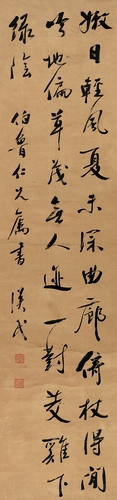 嫩日輕風夏未深曲廊倚杖得閒
吟地偏草茂無人迹一對茭雞下
綠陰 伯魯仁兄屬書